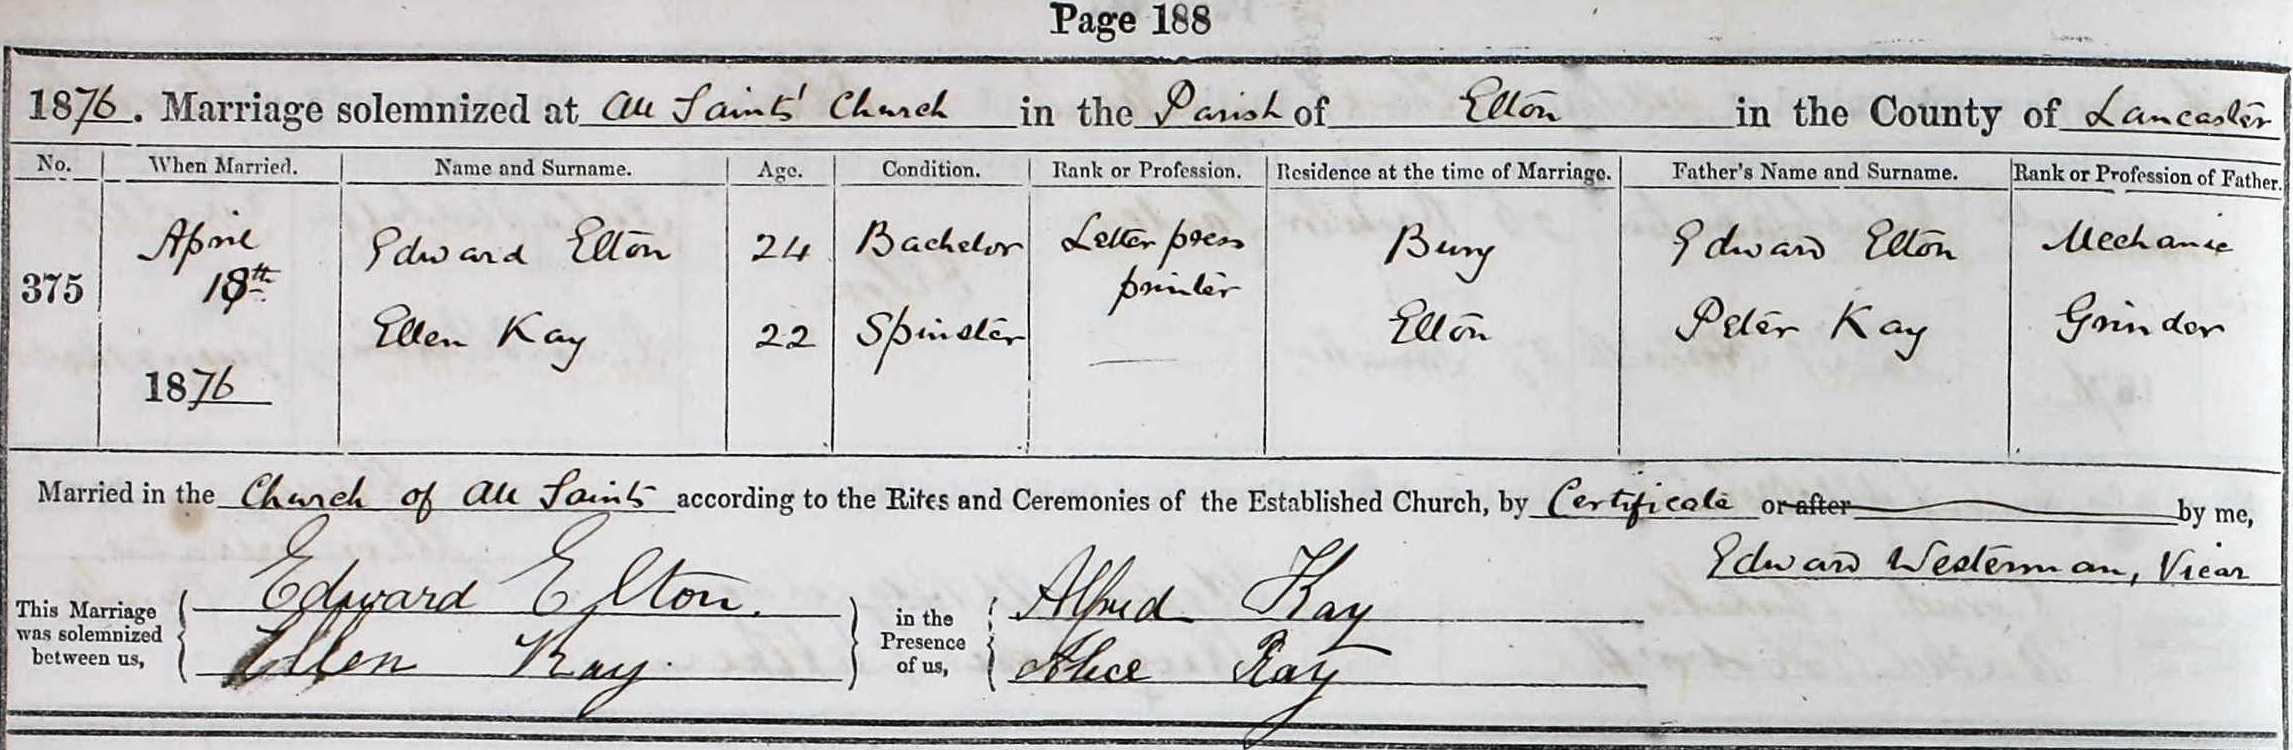 Page 188
1876. Marriage solemnized at All Saints' Church in the Parish of Elton in the County of Lancaster
No. When Married. Name and Surname. Age. Condition. Rank or Profession. Residence at the time of Marriage. Father's Name and Surname. Rank or Profession of Father.
April Edward Elton 24 Bachelor Letter press Bury Edward Elton Mechanic
375 18th printer
Ellen Kay 22 Spinster Elton Peter Kay Grinder
1876
Married in the Church of All Saints according to the Rites and Ceremonies of the Established Church, by Certificate or after by me,
Edward Westerman, Vicar
This Marriage was solemnized between us, Edward Elton. Ellen Kay. in the Presence of us, Alfred Kay Alice Kay